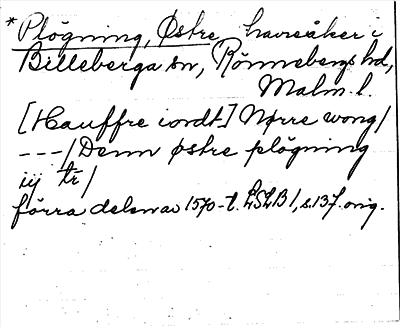 * Plögning, Østre, havreåker i
Billeberga sn, Rönnebergs hd,
Malm. l.
[Hauffre iordt] Nørre wong/
---/Denn østre plögning
iij tr/
förra delen av 1570-t. LSLB 1, s. 137. orig.